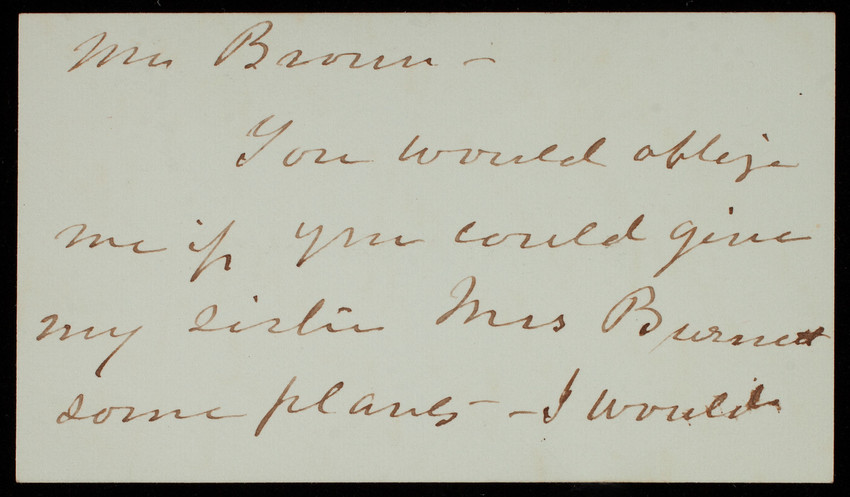 Mr Brown -
You would oblige
me if you could give
my sister Mrs Burnett
some plants - I would